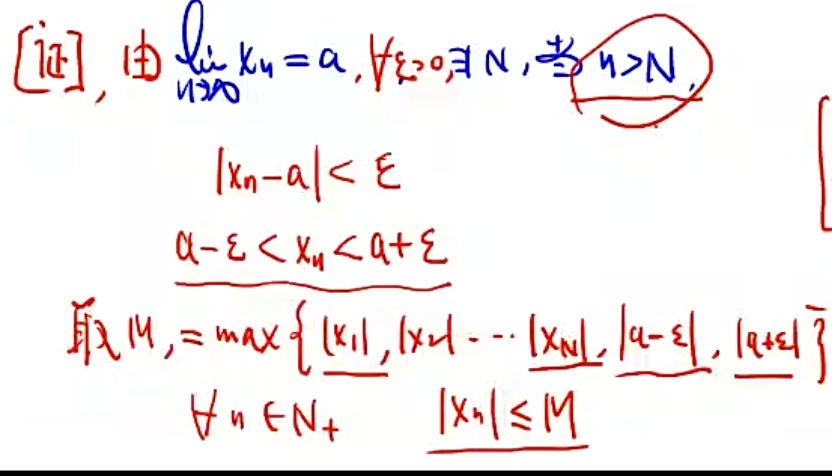 [证],由 lim n→∞ xₙ = a,∀ε>0,∃N,当 n>N,
|xₙ-a|< ε
a-ε < xₙ < a+ε
取 M,= max{|x₁|,|x₂|···|x_N|,|a-ε|,|a+ε|}
∀ n ∈ N₊ |xₙ| ≤ M